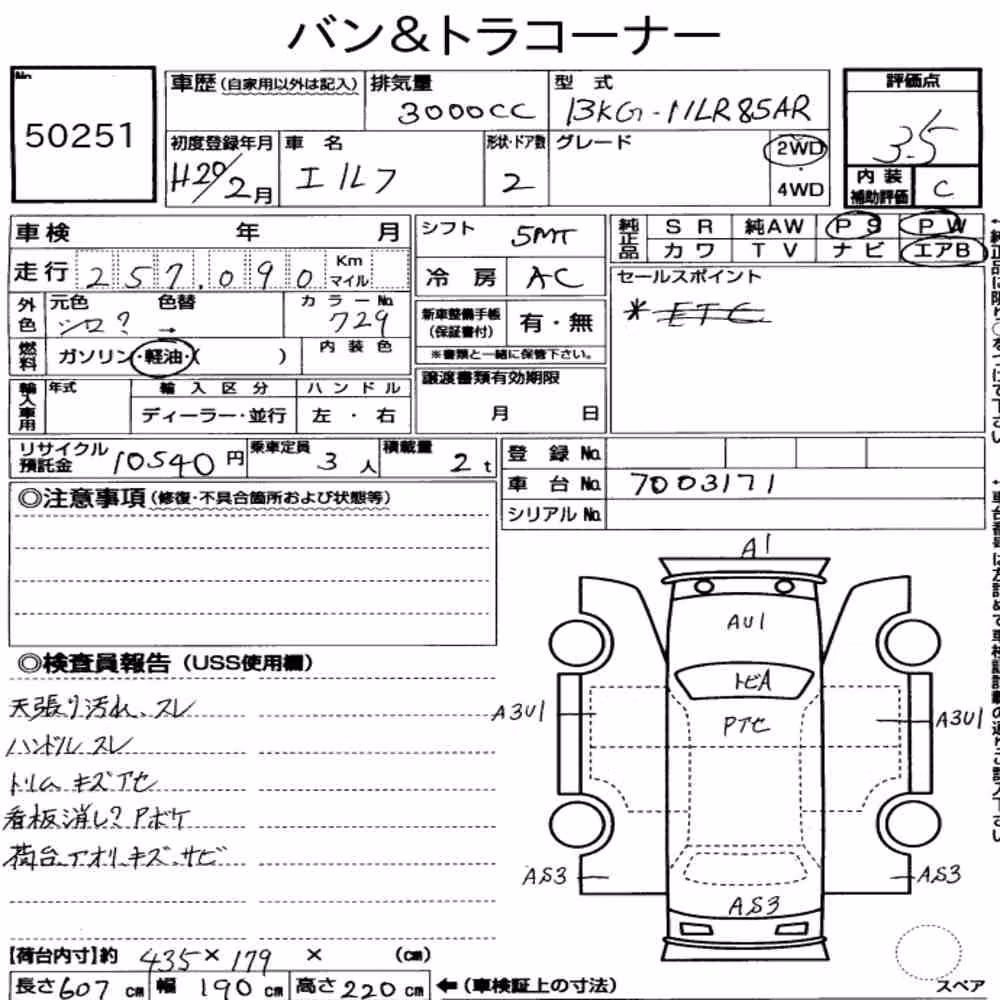 バン&トラコーナー
No.
50251
車歴 (自家用以外は記入)
排気量
3000CC
型 式
BKG-NLR85AR
評価点
3.5
初度登録年月
H20/2月
車 名
エルフ
形状・ドア数
2
グレード
2WD
4WD
内 装
補助評価
C
車検 年 月
走行 257,090 Km マイル
シフト
5MT
純正品
S R 純AW P S P W
カワ T V ナビ エアB
冷 房
AC
セールスポイント
*ETC
外色
元色
シロ?
色替
→
カラーNo.
729
新車整備手帳
(保証書付)
有・無
※書類と一緒に保管下さい。
燃料
ガソリン・軽油・( )
内 装 色
輸入車用
年式
輸 入 区 分
ディーラー・並行
ハ ン ド ル
左 ・ 右
譲渡書類有効期限
月 日
リサイクル
預託金
10540円
乗車定員
3人
積載量
2t
登 録 No.
車 台 No. 7003171
シリアル No.
◎注意事項 (修復・不具合箇所および状態等)
◎検査員報告 (USS使用欄)
天張り汚れ、スレ
ハンドルスレ
トリム キズアセ
看板消し? Aボケ
荷台、アオリ、キズ、サビ
A1
AU1
トビA
Pアセ
A3U1
A3U1
AS3
AS3
AS3
スペア
【荷台内寸】約 435 × 179 × (cm)
長さ607cm 幅190cm 高さ220cm ←(車検証上の寸法)
↑純正品に限り○をつけて下さい